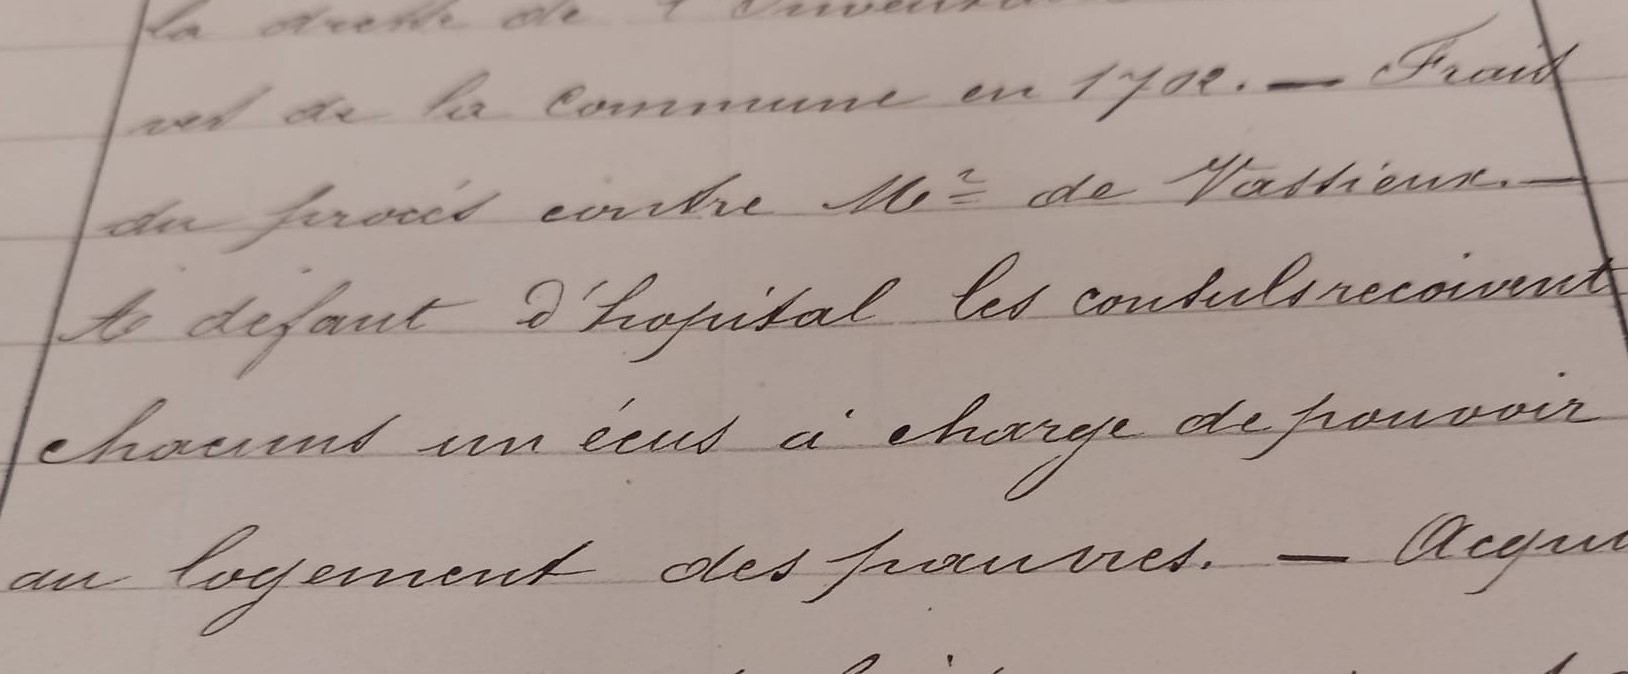 la dresse de l'Inventai
ves de la Commune en 1702. — Frais
du procés contre Mr de Vassieux. —
A défaut d'hopital les consuls recoivent
chacuns un écus à charge de pouvoir
au logement des pauvres. — Acqui